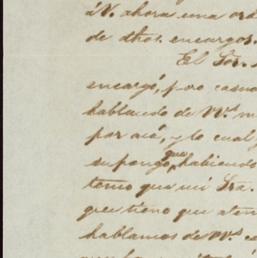 á V. ahora una ord
de dhos. encargos.
El Sor.
encargó, pero como
hablando de Vd. m
por acá, y lo cual
supongo que, habiendo
temo que mi Sra.
que tiene que aten
hablamos de Vd. co